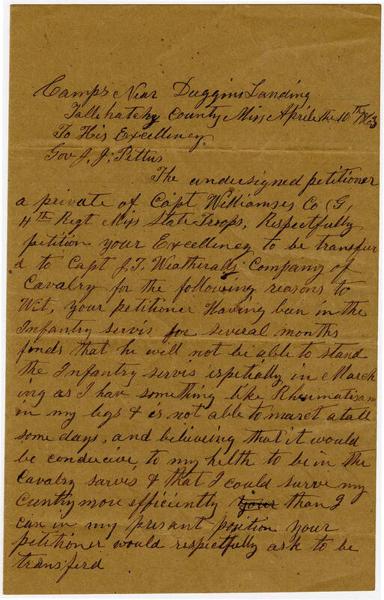 Camps Near Duggins Landing
Tallehatchy County Miss Aprile the 10th 1863
To His Excellency
Gov J. J. Pettus
The undersigned petitioner
a private of Capt Williamses Co G,
4th Regt Miss State Troops, Respectfully
petition your Excellency to be transfur
d to Capt J. T. Weatheralls Company of
Cavalry for the following reasons to
Wit, your petitioner Having bein in the
Infantry servis for several months
fonds that he will not be able to stand
the Infantry servis espitially in March
ing as I have something like Rheumatism
in my legs & is not able to march atall
some days, and beliveing that it would
be conducive to my helth to be in the
Cavalry sarvis & that I could surve my
Cuntry more efficiently your than I
can in my presant position your
petitioner would respectfully ask to be
transferd